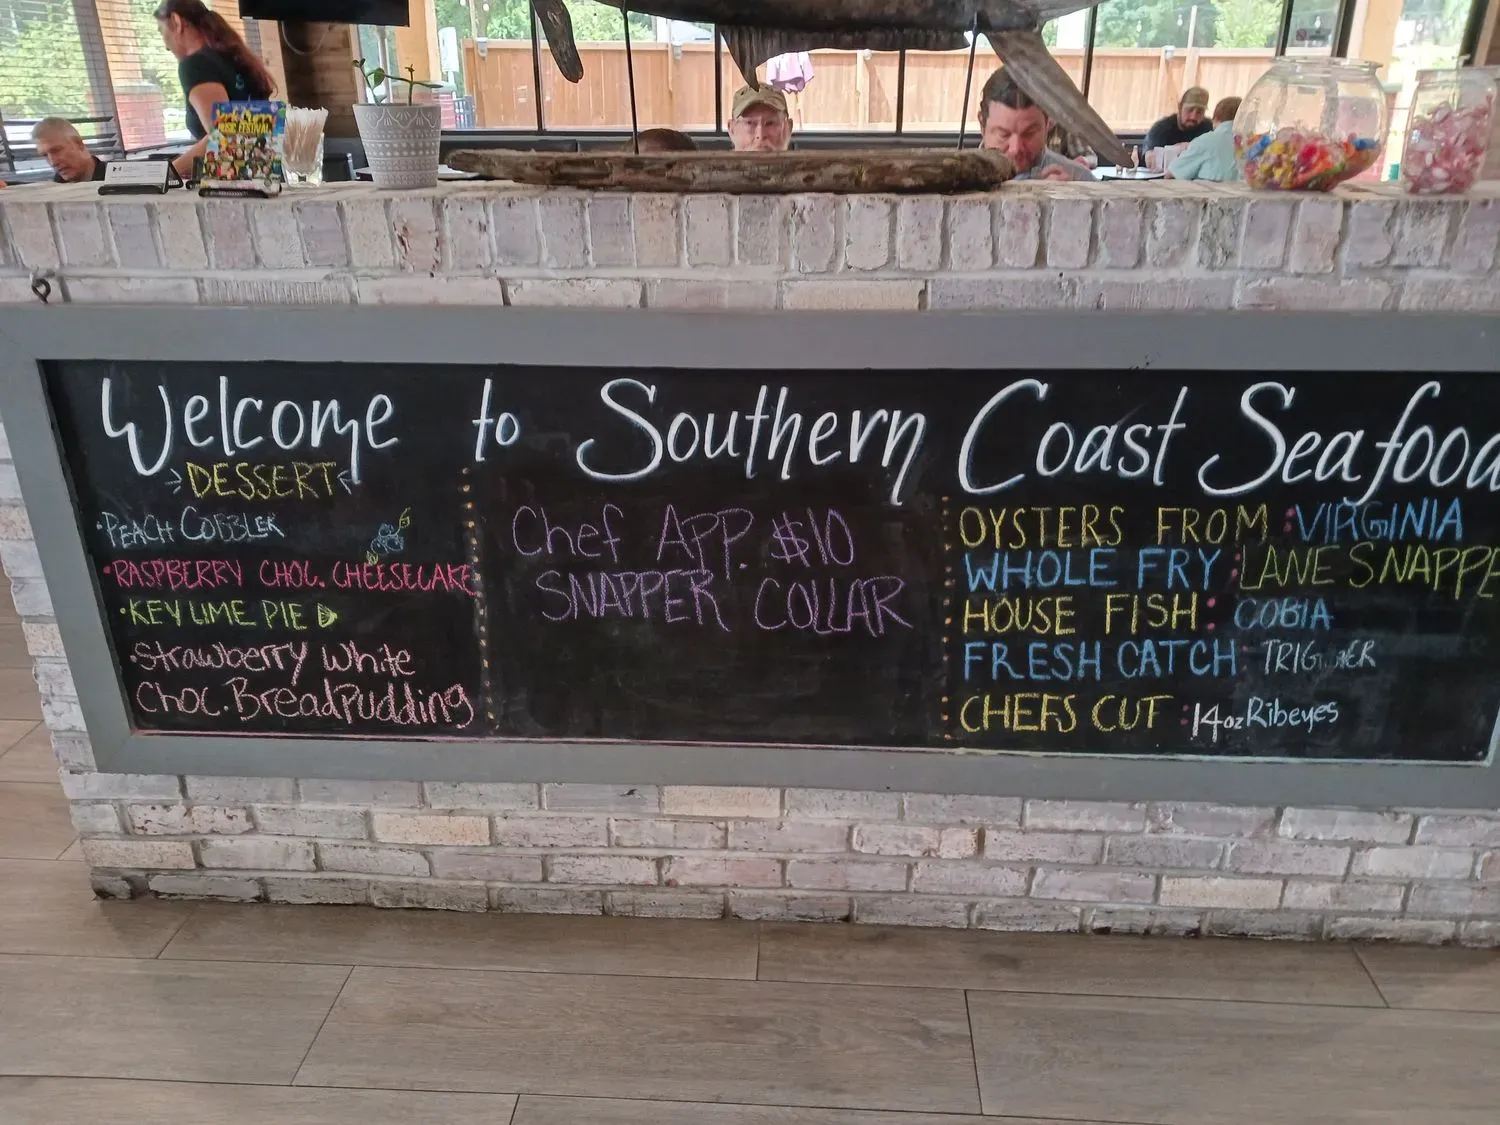 Welcome to Southern Coast Seafood
DESSERT
• PEACH COBBLER
• RASPBERRY CHOC. CHEESECAKE
• KEY LIME PIE
• Strawberry White
Choc. Bread Pudding
Chef APP. $10
SNAPPER COLLAR
OYSTERS FROM : VIRGINIA
WHOLE FRY : LANE SNAPPE
HOUSE FISH : COBIA
FRESH CATCH : TRIGGER
CHEFS CUT : 14oz Ribeyes
MUSIC FESTIVAL